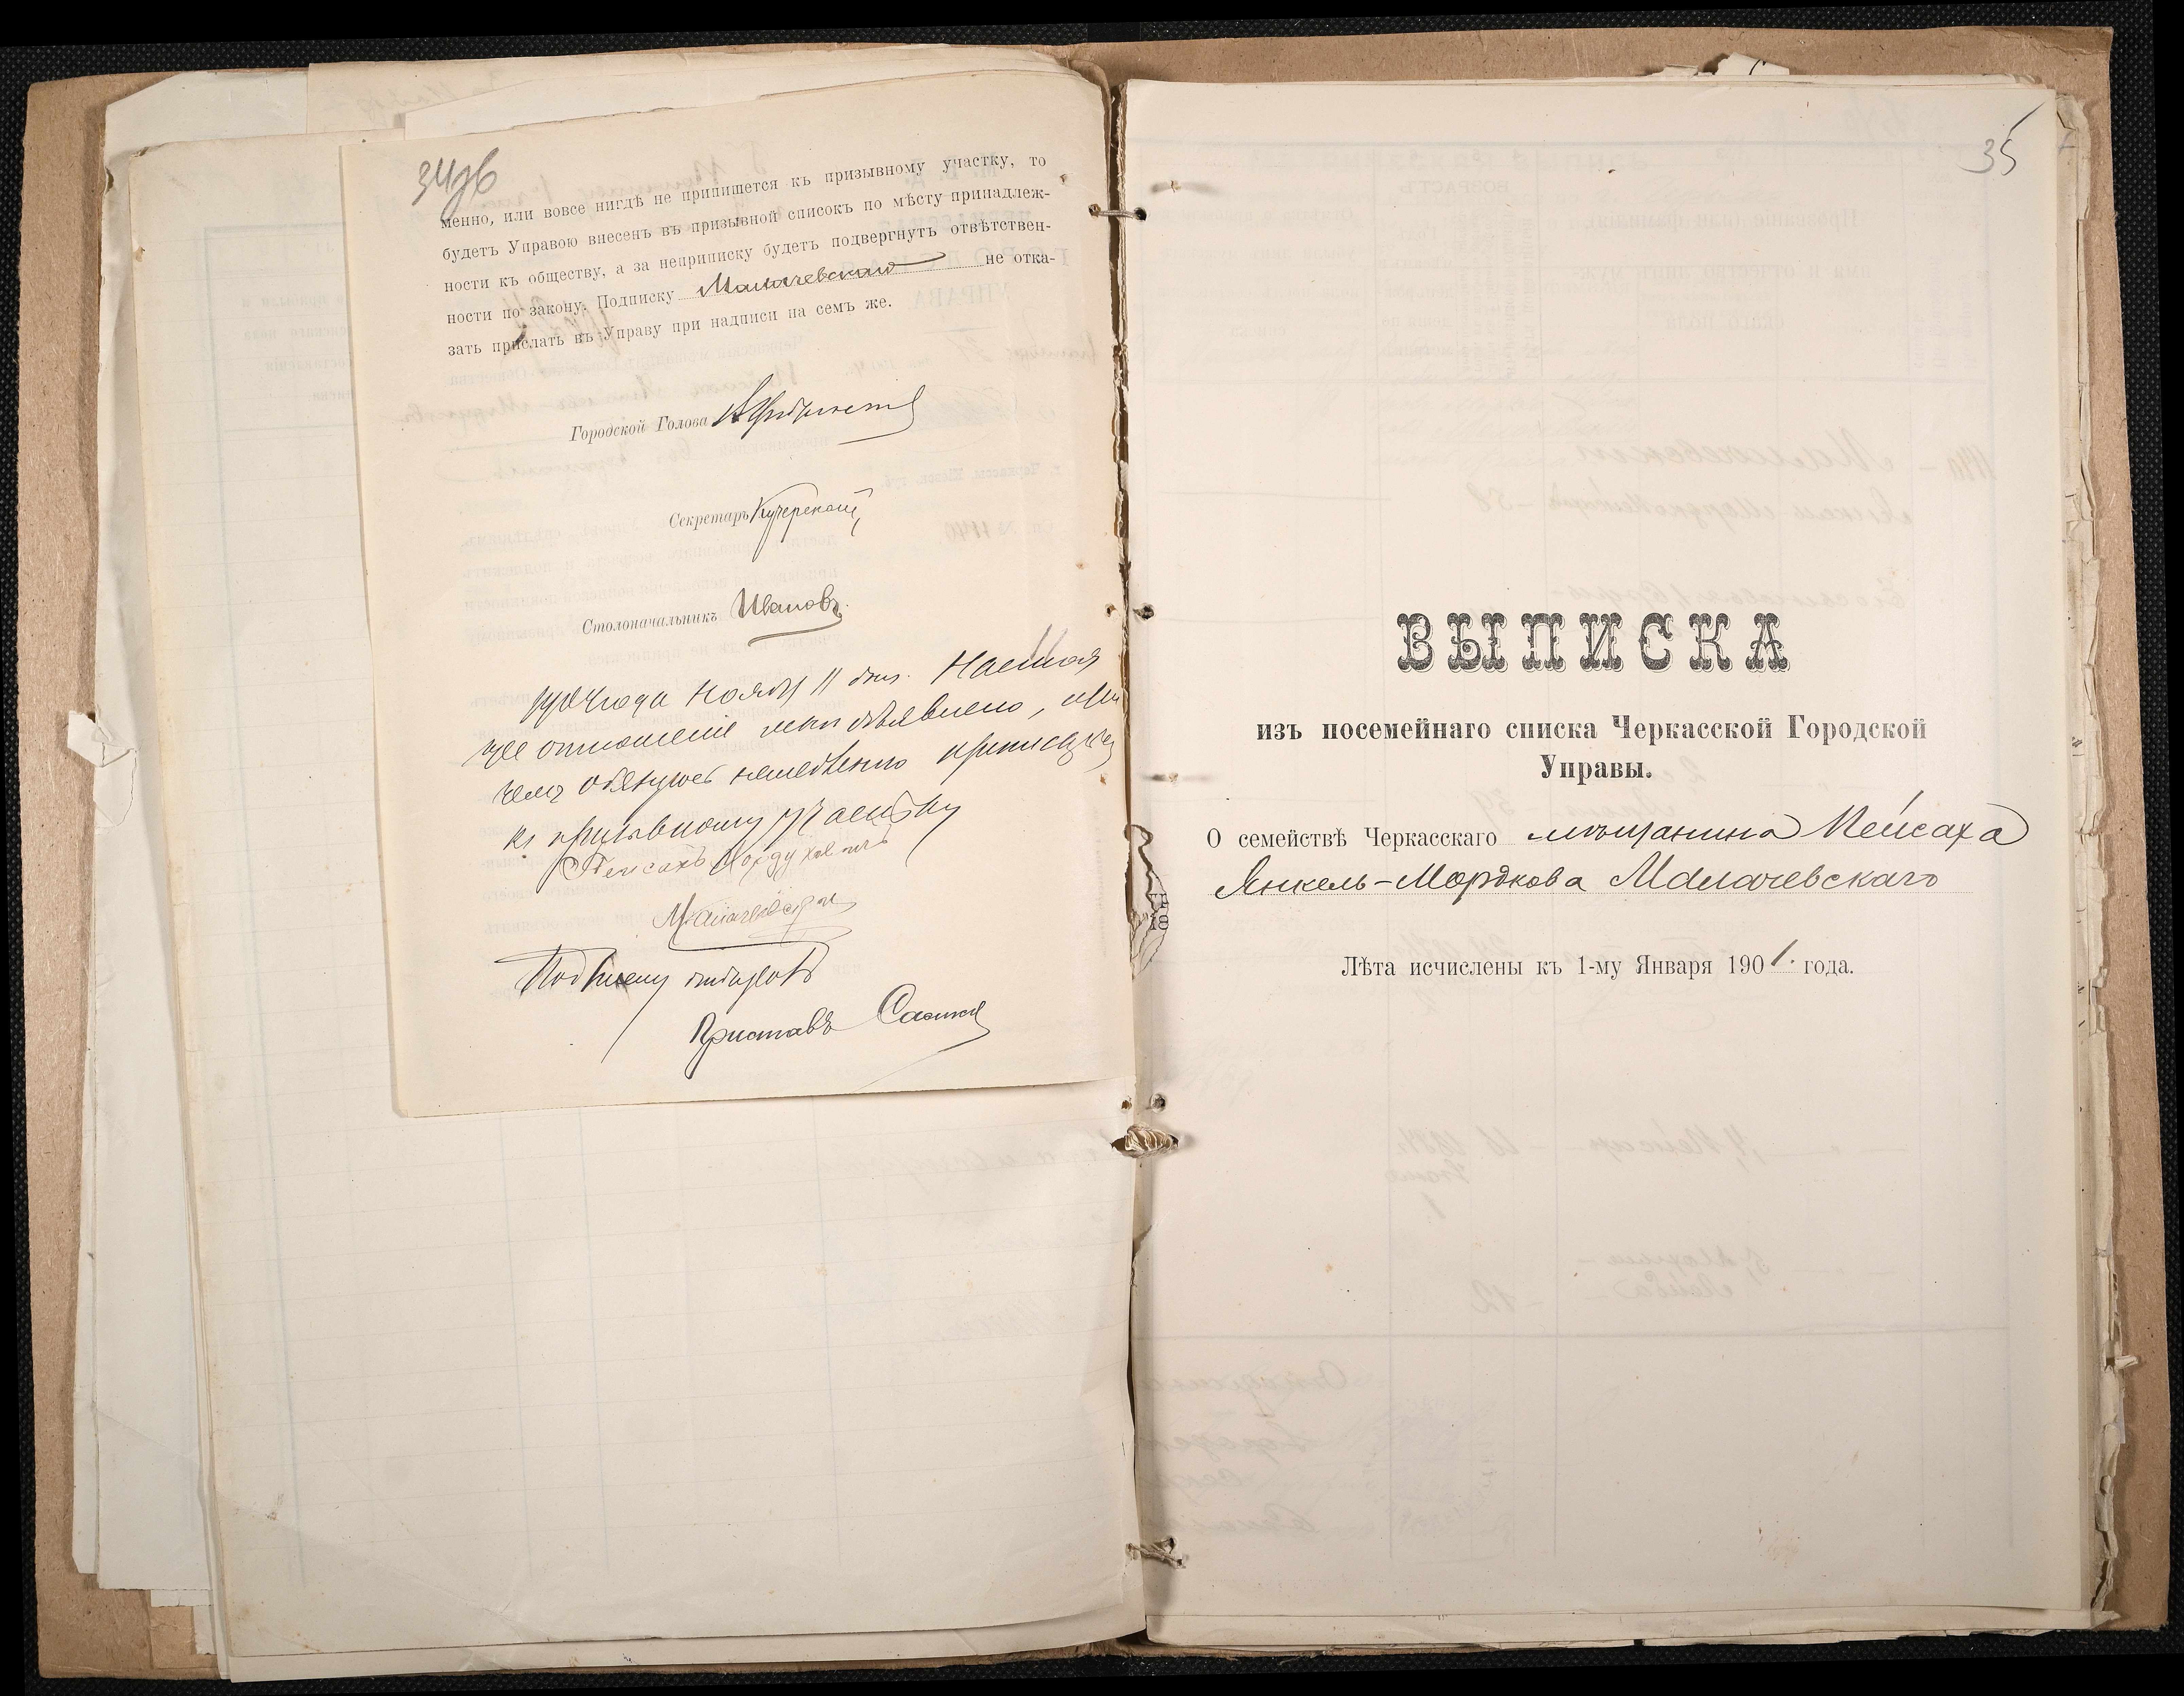 34об
менно, или вовсе нигдѣ не припишется къ призывному участку, то
будетъ Управою внесенъ въ призывной списокъ по мѣсту принадлеж-
ности къ обществу, а за неприписку будетъ подвергнутъ отвѣтствен-
ности по закону. Подписку Малачевскаго не отка-
зать прислать въ Управу при надписи на семъ же.
Городской Голова
Секретарь Кучерскій
Столоначальникъ Ивановъ
1904 года Ноября 11 дня. Настоя
щее отношеніе мнѣ объявлено, при
чемъ обязуюсь немедленно
къ призывному участку
Пейсахъ Мордуховичъ
Малачевскій
Приставъ
35
ВЫПИСКА
изъ посемейнаго списка Черкасской Городской
Управы.
О семействѣ Черкасскаго мѣщанина Пейсаха
Янкель-Мордкова Малачевскаго
Лѣта исчислены къ 1-му Января 1901. года.